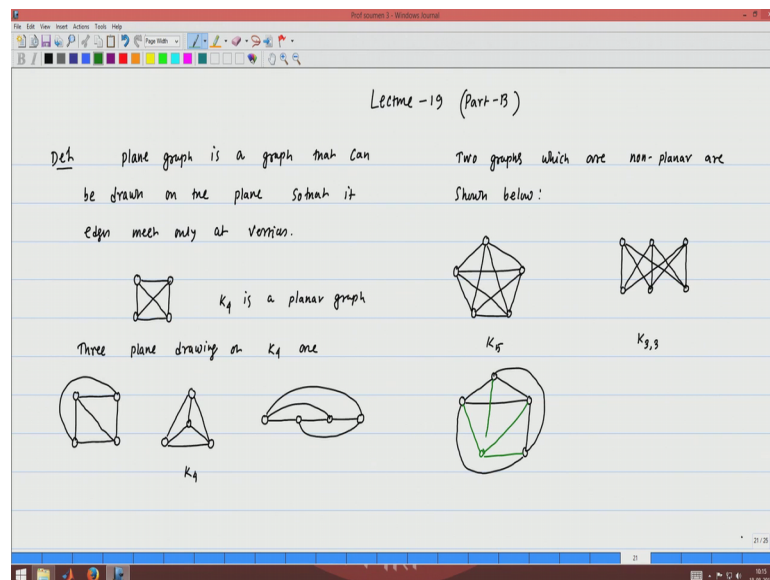 Prof soumen 3 - Windows Journal
File Edit View Insert Actions Tools Help
Page Width
B I
Lecture -19 (Part-B)
Def plane graph is a graph that can
be drawn on the plane so that it
edges meet only at vertices.
K4 is a planar graph
Three plane drawing on K4 are
K4
Two graphs which are non-planar are
Shown below:
K5
K3,3
21 / 25
21
10:15